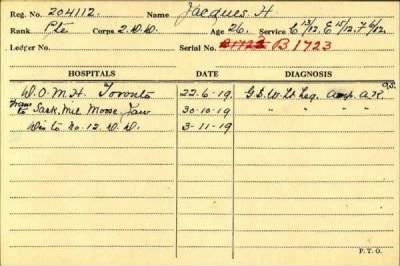 Reg. No. 204112. Name Jacques. H.
Rank Pte Corps 2.D.D. Age 26. Service C 13/12. E 15/12. F 6/12.
Ledger No. Serial No. B1723 B 1723
HOSPITALS DATE DIAGNOSIS
95.
D.O.M.H. Toronto 22.6.19. G.S.W. Lt Leg. Amp. A.K.
Trans to Sask. Mil. Moose Jaw 30-10-19 " " " " "
Dis to No. 12. D.D. 3-11-19
P. T. O.